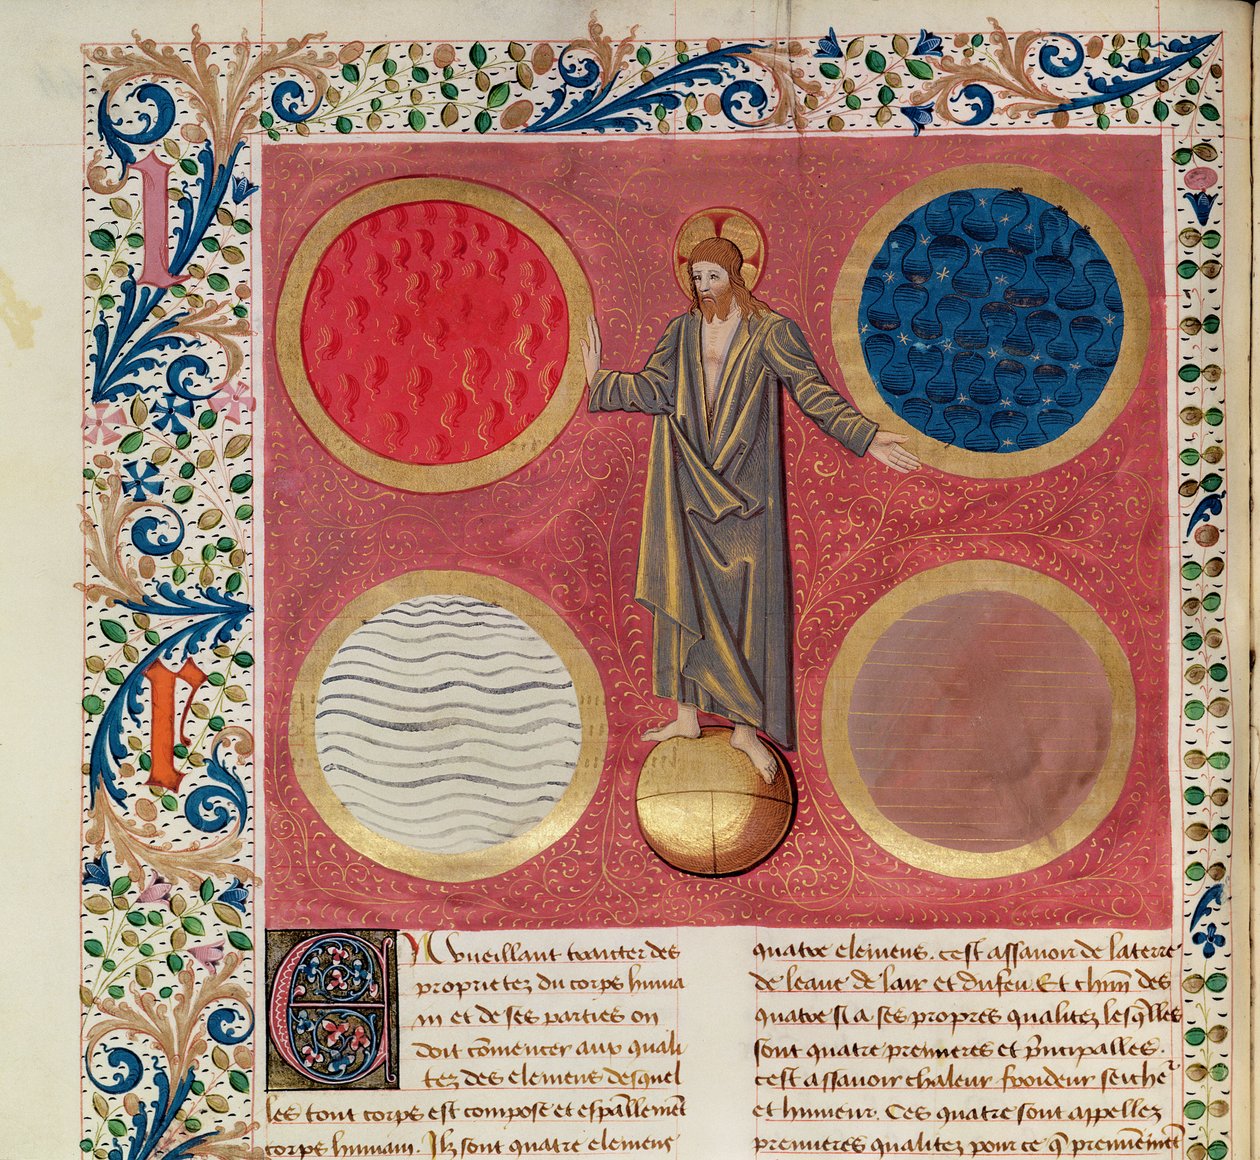 l
r
EN vueillant traicter des
proprietez du corps huma
in et de ses parties on
doit cōmencer aux quali
tez des elemens desquel
les tout corps est compose et esp̄allement
corps humain. Ilz sont quatre elemens
quatre elemens. cest assavoir de la terre
de leaue de lair et du feu. Et chūn des
quatre si a ses propres qualitez lesq̄lles
sont quatre premieres et p̄ncipalles.
cest assavoir chaleur froideur seicheʳ
et humeur. Ces quatre sont appellez
premieres qualitez pour ce q̄ premieremēt